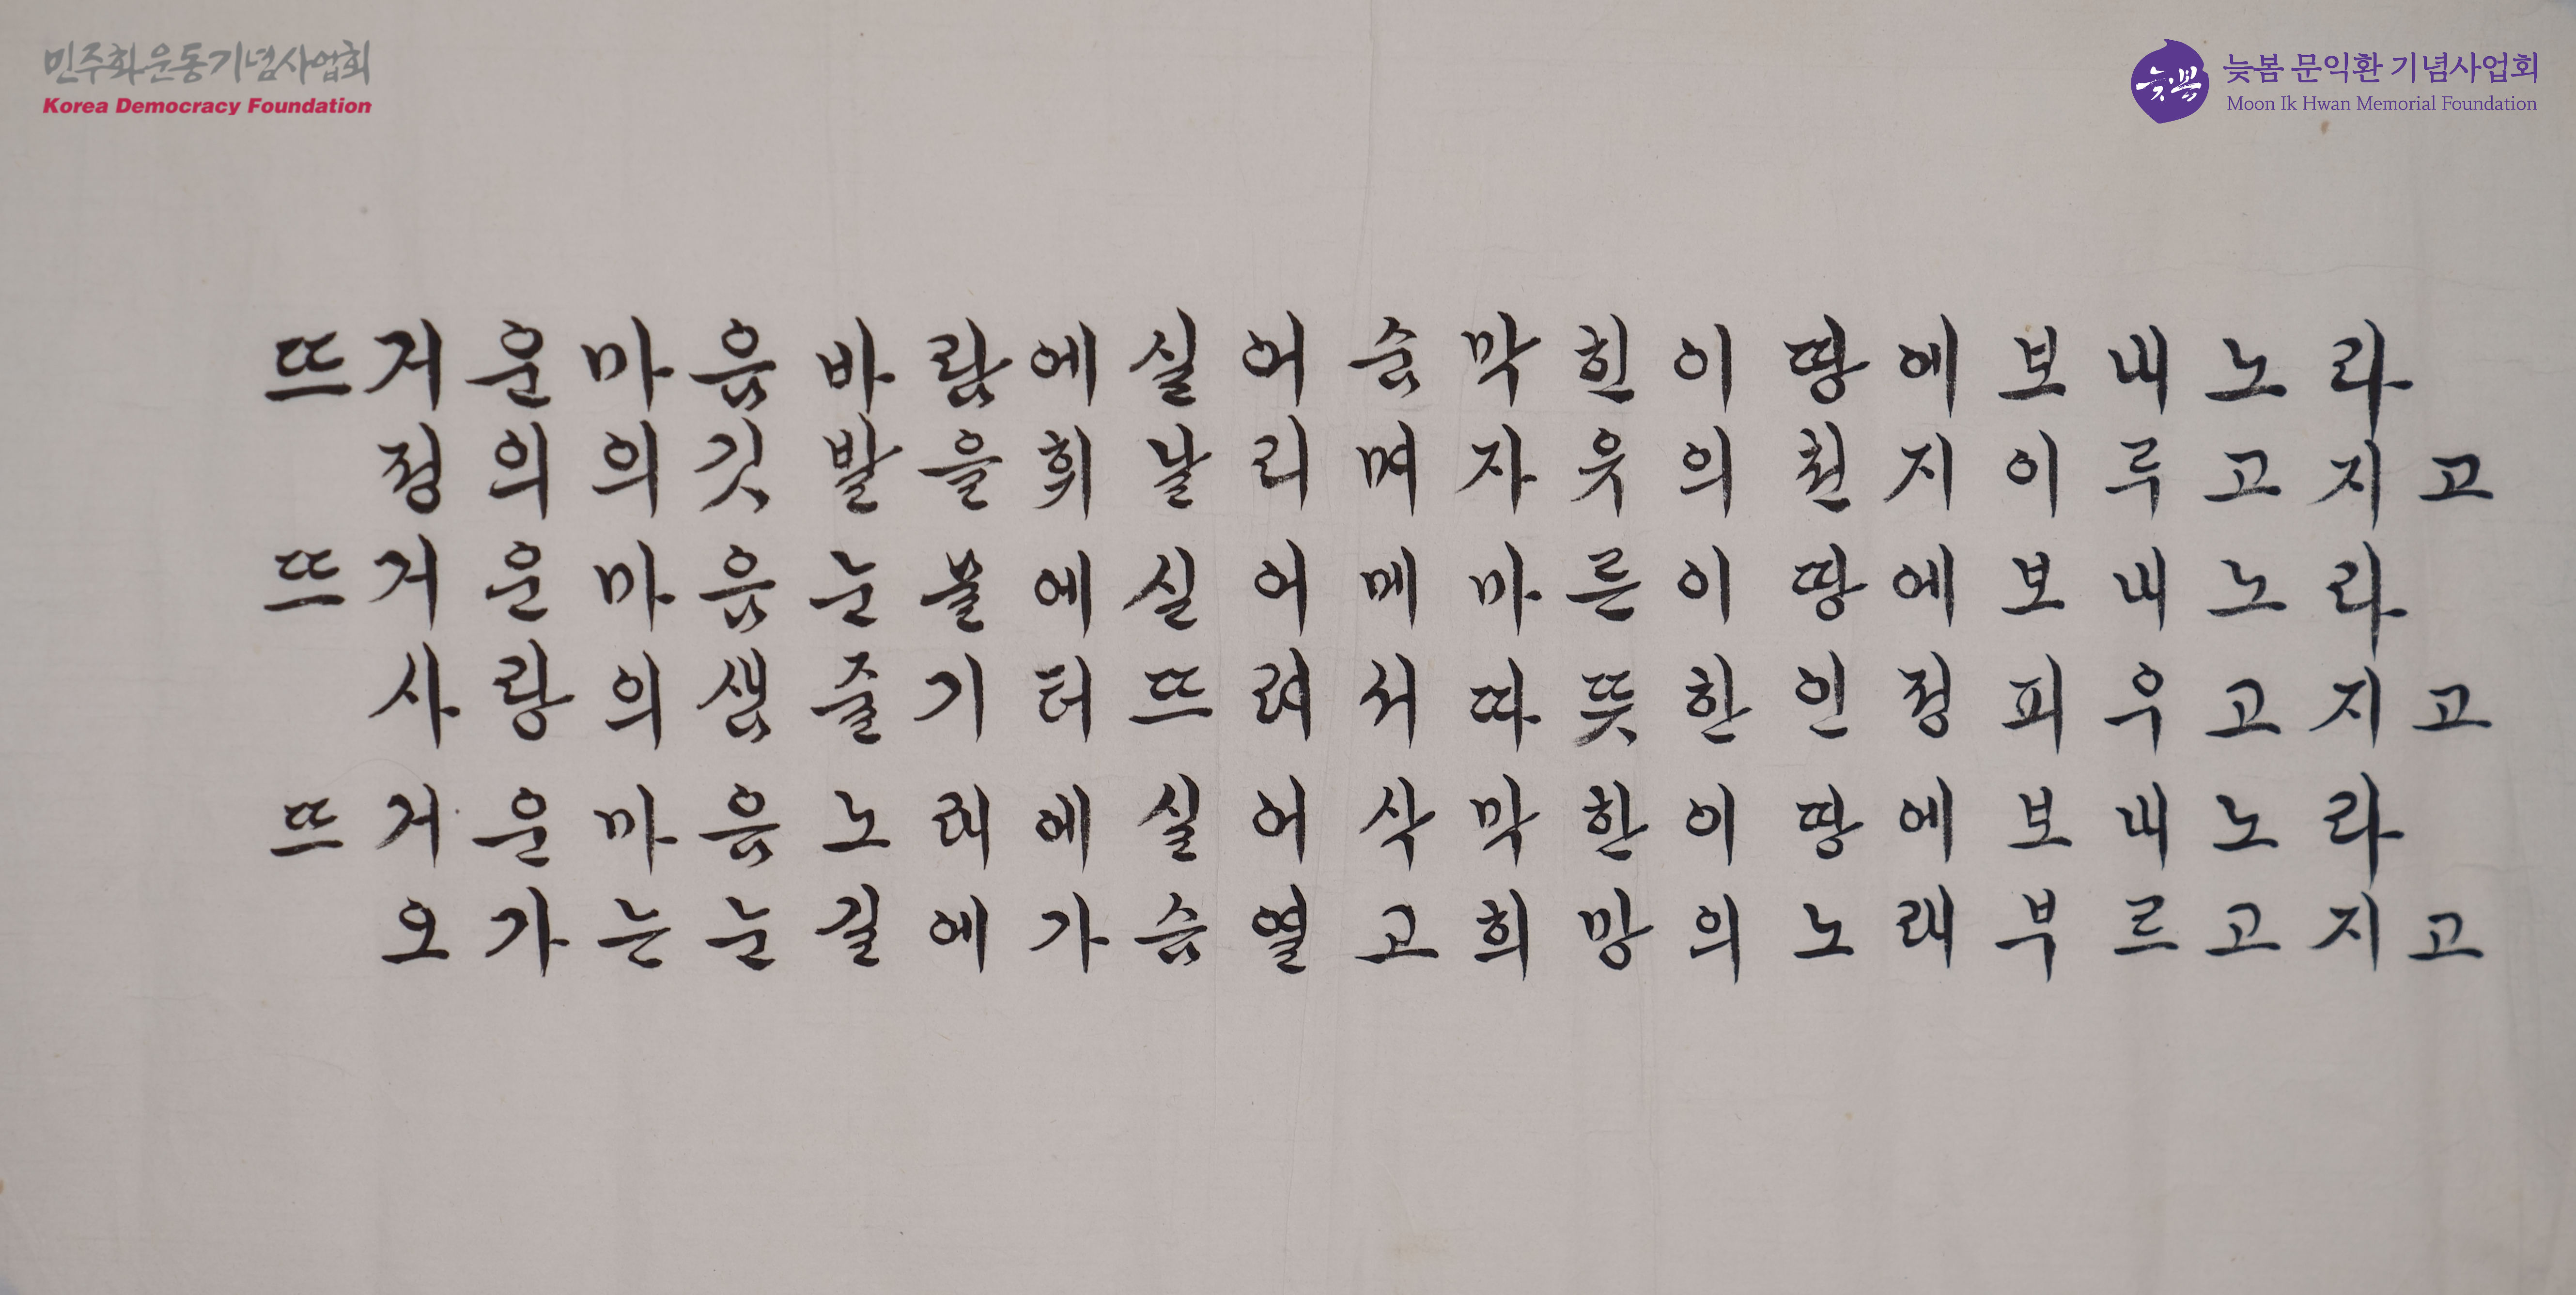 민주화운동기념사업회
Korea Democracy Foundation
늦봄
늦봄 문익환 기념사업회
Moon Ik Hwan Memorial Foundation
뜨거운마음바람에실어숨막힌이땅에보내노라
정의의깃발을휘날리며자유의천지이루고지고
뜨거운마음눈물에실어메마른이땅에보내노라
사랑의샘줄기터뜨려서따뜻한인정피우고지고
뜨거운마음노래에실어삭막한이땅에보내노라
오가는눈길에가슴열고희망의노래부르고지고